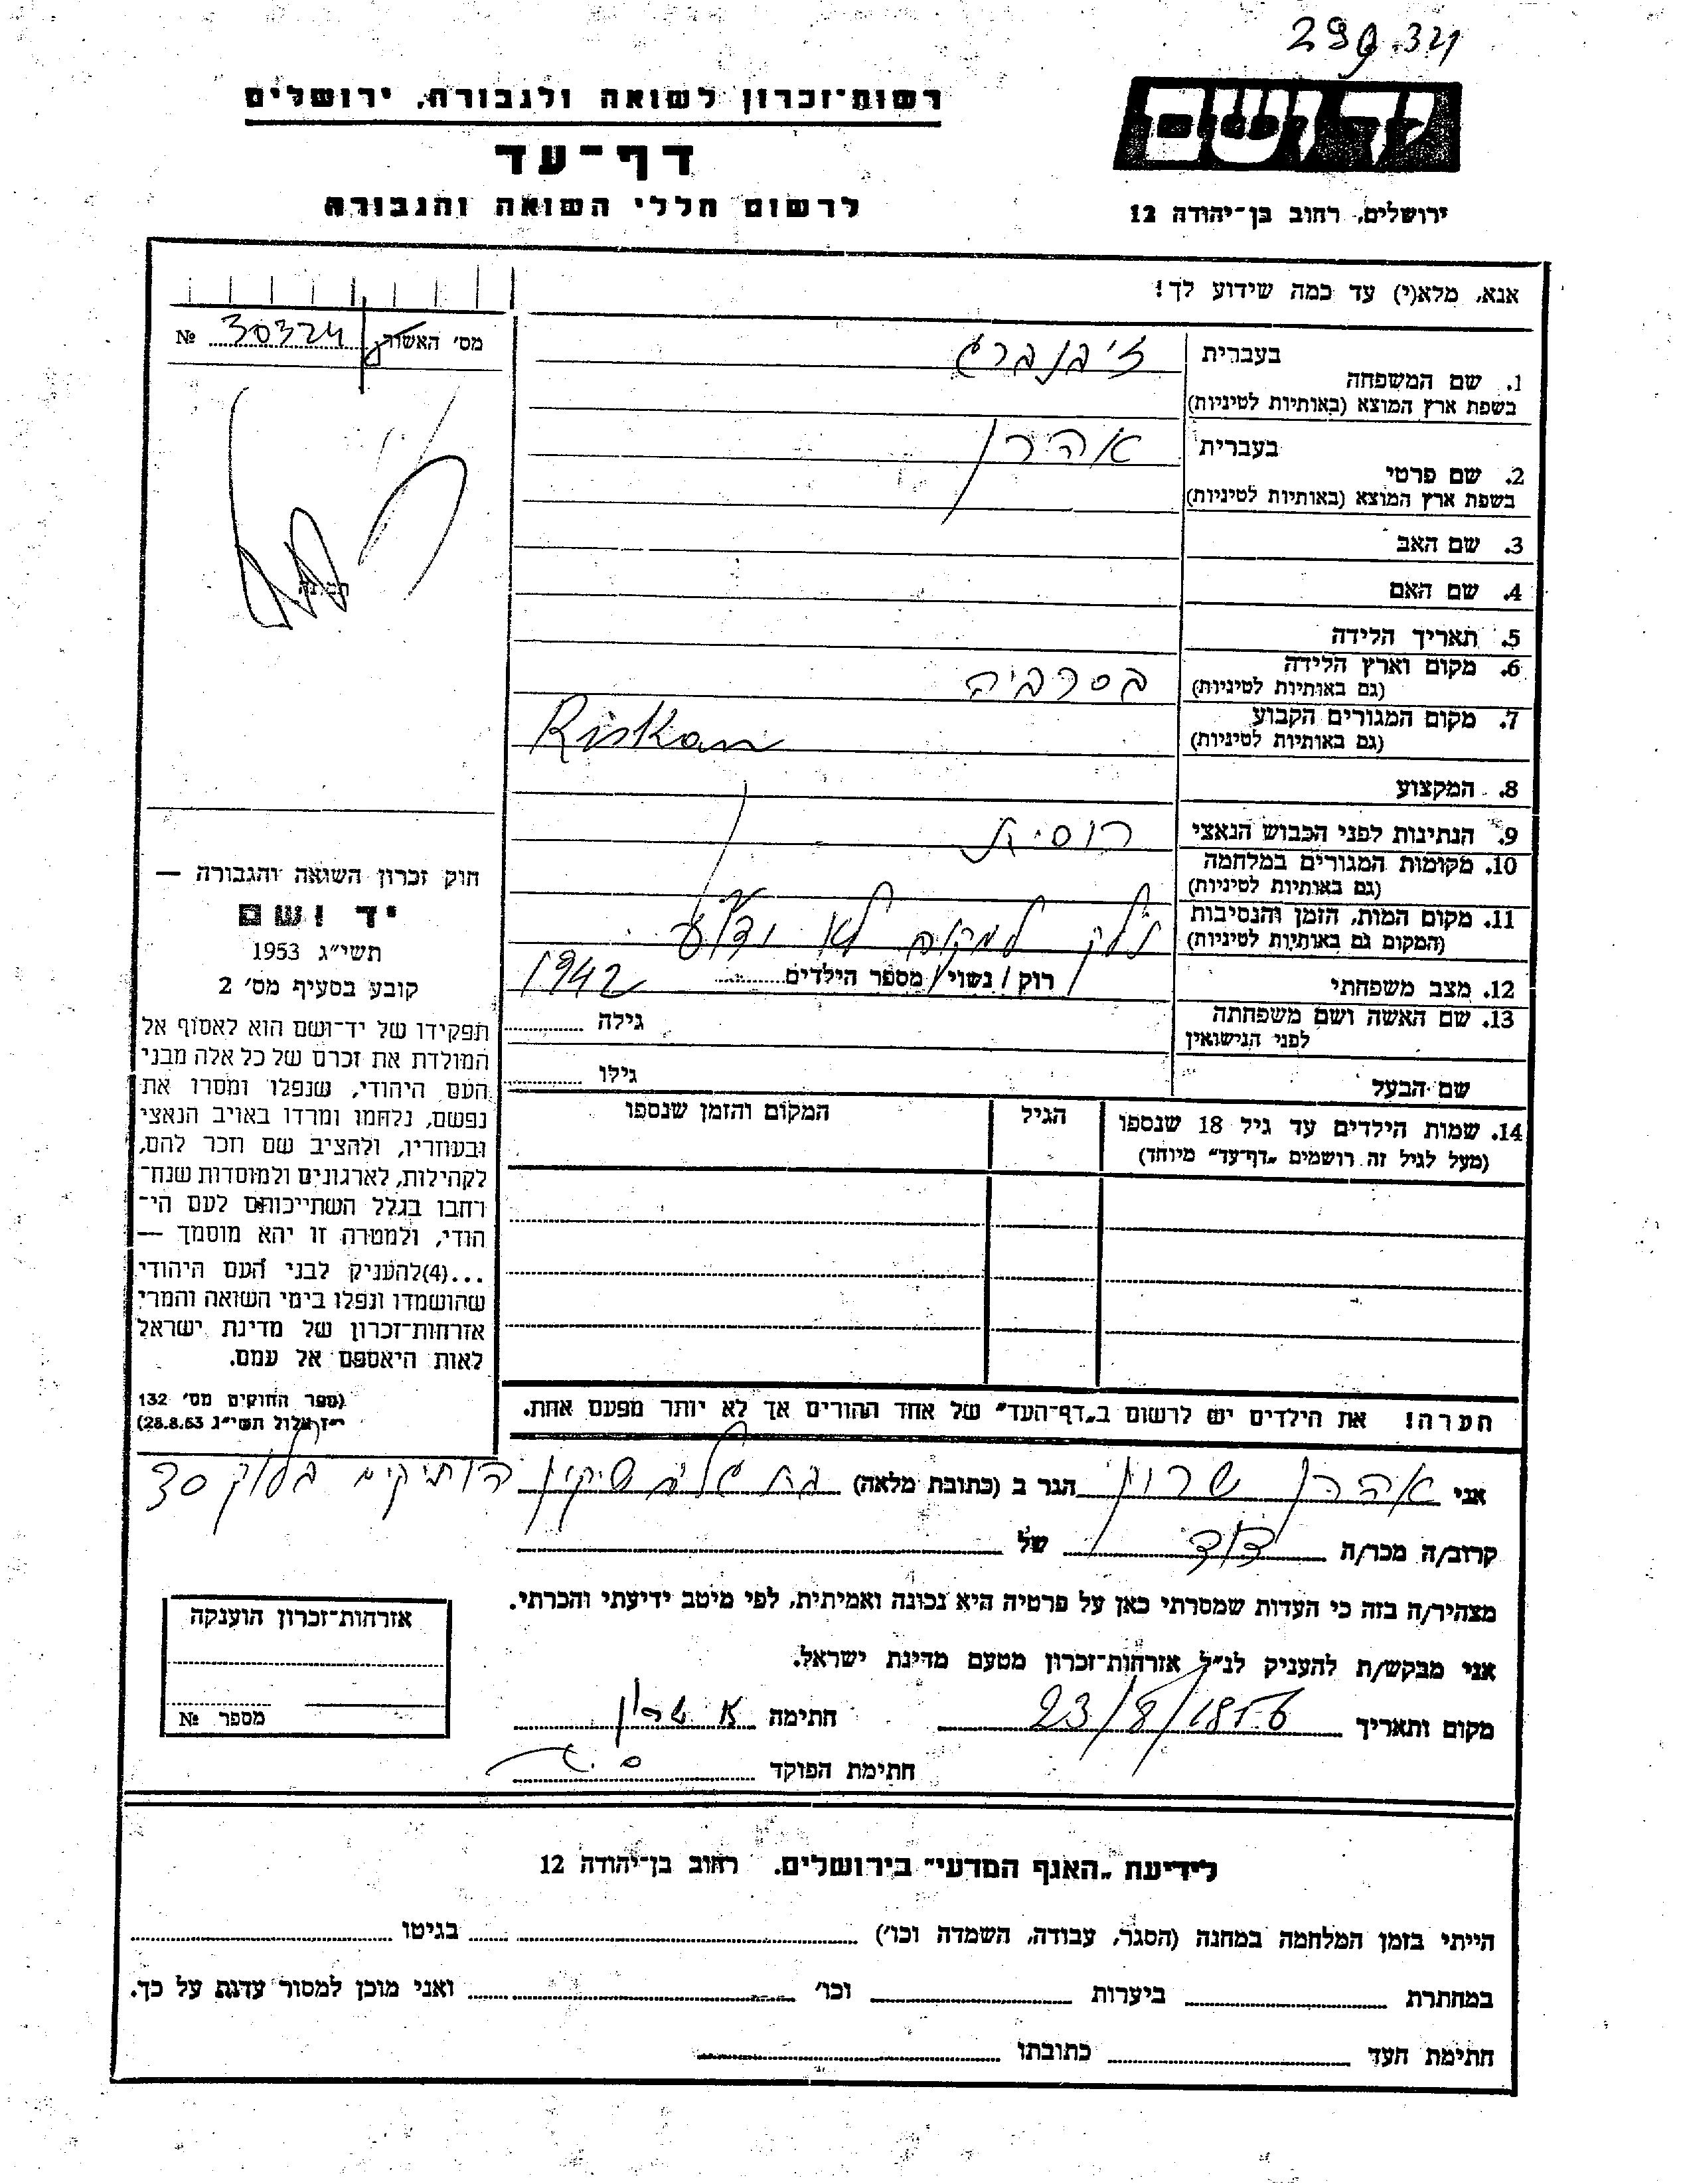 רשות־זכרון לשואה ולגבורה, ירושלים
דף־עד
לרשום חללי השואה והגבורה
יד ושם
ירושלים, רחוב בן־יהודה 12
אנא, מלא(י) עד כמה שידוע לך!
מס' האשור 30324 №
1. שם המשפחה
בעברית
בשפת ארץ המוצא (באותיות לטיניות)
2. שם פרטי
בעברית אהרן
בשפת ארץ המוצא (באותיות לטיניות)
3. שם האב
4. שם האם
5. תאריך הלידה
6. מקום וארץ הלידה
(גם באותיות לטיניות) בסרביה
7. מקום המגורים הקבוע
(גם באותיות לטיניות) Riskan
8. המקצוע
9. הנתינות לפני הכבוש הנאצי רוסית
10. מקומות המגורים במלחמה
(גם באותיות לטיניות)
11. מקום המות, הזמן והנסיבות
(המקום גם באותיות לטיניות) למקום לא ידוע
12. מצב משפחתי רוק / נשוי / מספר הילדים 1942
13. שם האשה ושם משפחתה גילה
לפני הנישואין
שם הבעל גילו
14. שמות הילדים עד גיל 18 שנספו הגיל המקום והזמן שנספו
(מעל לגיל זה רושמים „דף־עד" מיוחד)
חוק זכרון השואה והגבורה —
יד ושם
תשי"ג 1953
קובע בסעיף מס' 2
תפקידו של יד־ושם הוא לאסוף אל
המולדת את זכרם של כל אלה מבני
העם היהודי, שנפלו ומסרו את
נפשם, נלחמו ומרדו באויב הנאצי
ובעוזריו, ולהציב שם וזכר להם,
לקהילות, לארגונים ולמוסדות שנח־
רחבו בגלל השתייכותם לעם הי־
הודי, ולמטרה זו יהא מוסמך —
...(4)להעניק לבני העם היהודי
שהושמדו ונפלו בימי השואה והמרי
אזרחות־זכרון של מדינת ישראל
לאות היאספם אל עמם.
(ספר החוקים מס' 132
י"ז אלול תשי"ג 28.8.53)
הערה! את הילדים יש לרשום ב„דף־העד" של אחד ההורים אך לא יותר מפעם אחת.
אני אהרן שרון הגר ב (כתובת מלאה) שיקון הותיקים בלוק 30
קרוב/ה מכר/ה דוד של
מצהיר/ה בזה כי העדות שמסרתי כאן על פרטיה היא נכונה ואמיתית, לפי מיטב ידיעתי והכרתי.
אני מבקש/ת להעניק לנ"ל אזרחות־זכרון מטעם מדינת ישראל.
מקום ותאריך 23/8/1956 חתימה א שרון
חתימת הפוקד
אזרחות־זכרון הוענקה
מספר №
לידיעת „האגף המדעי" בירושלים. רחוב בן־יהודה 12
הייתי בזמן המלחמה במחנה (הסגר, עבודה, השמדה וכו') בגיטו
במחתרת ביערות וכו' ואני מוכן למסור עדות על כך.
חתימת העד כתובתו